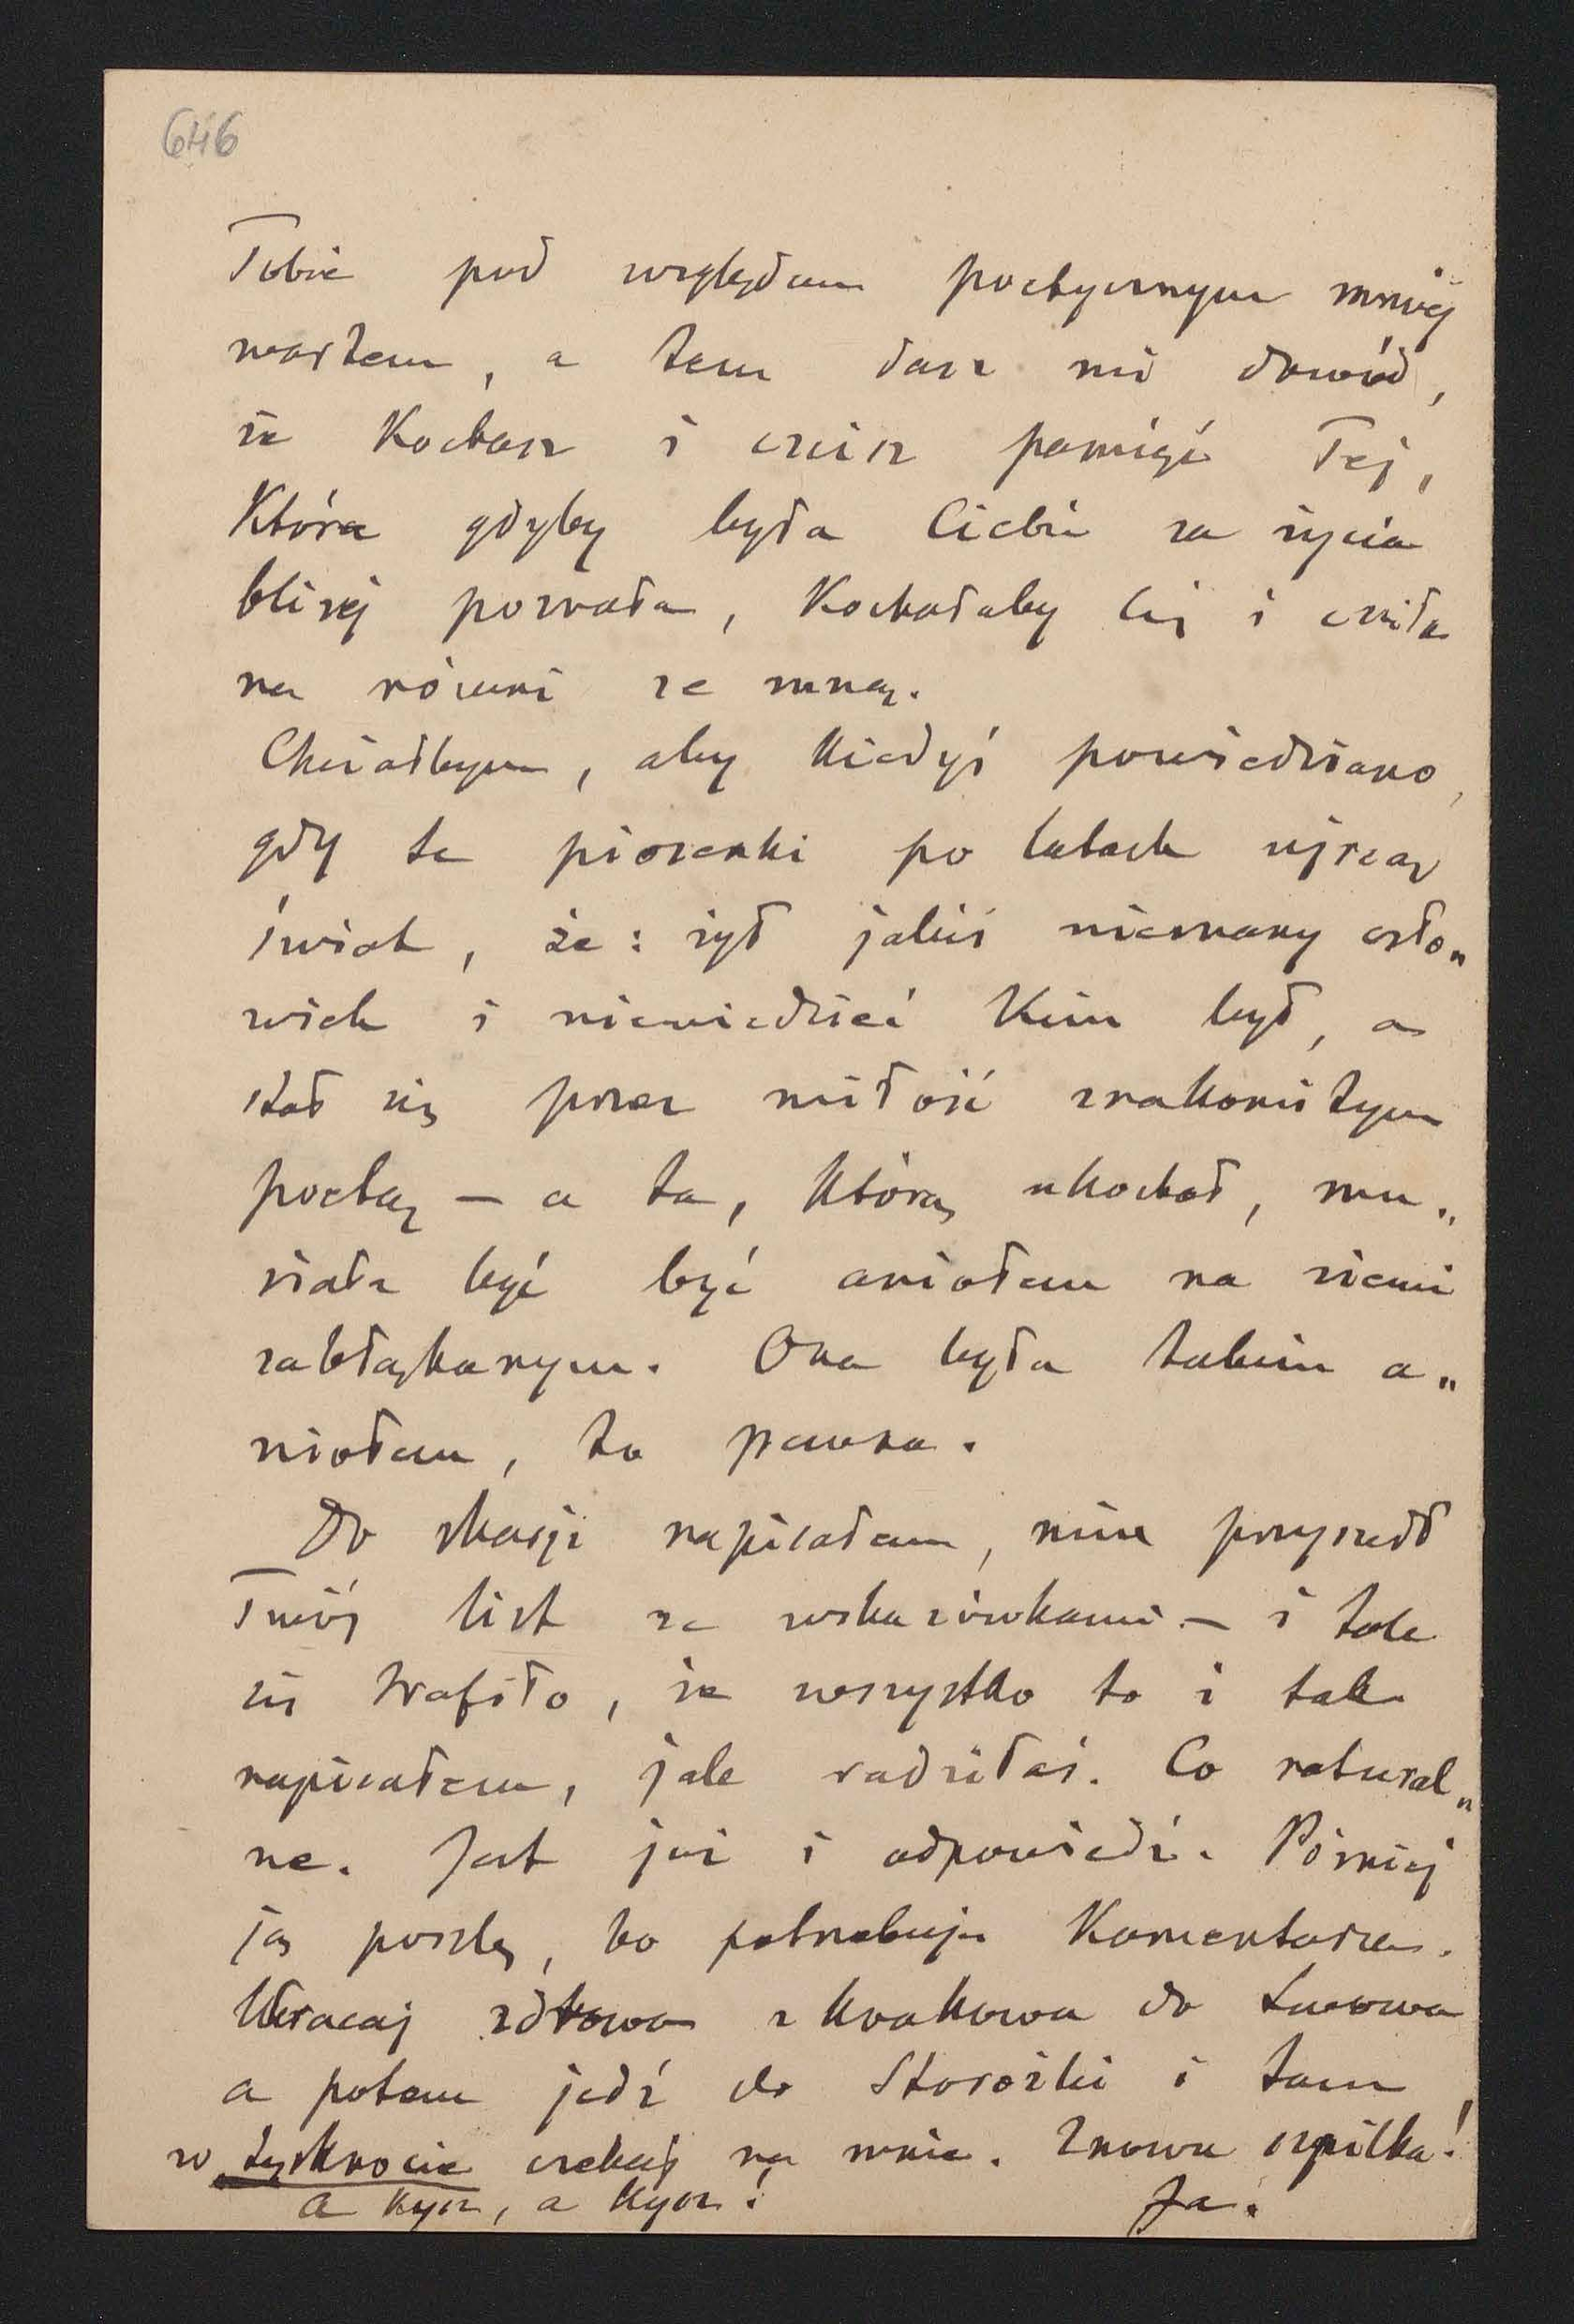 646
Tobie pod względem poetycznym mniej
wartem, a tem dasz mi dowód,
że kochasz i czcisz pamięć Tej,
Która gdyby była Ciebie za życia
bliżej poznała, Kochałaby Cię i czciła
na równi ze mną.
Chciałbym, aby kiedyś powiedziano,
gdy te piosenki po latach ujrzą
świat, że: żył jakiś nieznany czło„
wiek i niewiedzieć kim był, a
stał się przez miłość znakomitym
poetą – a ta, którą ukochał, mu„
siała być być aniołem na ziemi
zabłąkanym. Ona była takim a„
niołem, to pewna.
Do skarji napisałem, nim przyszedł
Twój list ze wskazówkami – i tak
się trafiło, że wszystko to i tak
napisałem, jak radziłaś. Co natural„
ne. Jest już i odpowiedź. Później
ją poszlę, bo potrzebuje Komentarza.
Wracaj zdrowa z Krakowa do Lwowa
a potem jedź do Storożki i tam
w tęsknocie czekaj na mnie. Znowu szpilka!
a kysz, a kysz! Ja.